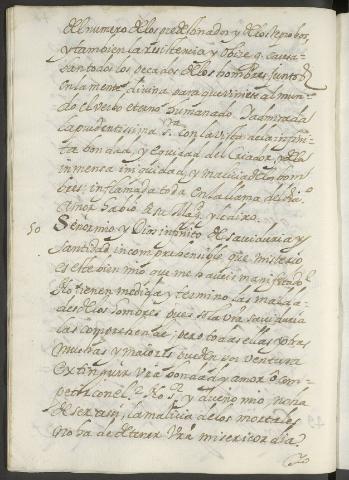 del numero de los predestinados y de los reprobos,
y tambien la resistencia y obice q. causa-
san todos los pecados de los hombres juntos
en la mente divina para que viniese al mun-
do el verbo eterno humanado. Y admirada
la prudentissima Sra. con la vista de la infini-
ta bondad, y equidad del Criador, y de la
inmensa iniquidad, y malicia de los hom-
bres; inflamada toda en la llama del divino
Amor hablo a su Mag. y le dixo.
50 Señor mio y Dios infinito de sabiduria y
santidad incomprehensible, que misterio
es este bien mio que me aveis manifestado?
No tienen medida y termino las malda-
des de los hombres pues sola vra. sabiduria
las comprehende; pero todas ellas y otras
muchas y maiores pueden por ventura
extinguir vra. bondad y amor o com-
petir con el? No Sr. y dueño mio, no ha
de ser asi, la malicia de los mortales
no ha de detener vra. misericordia?